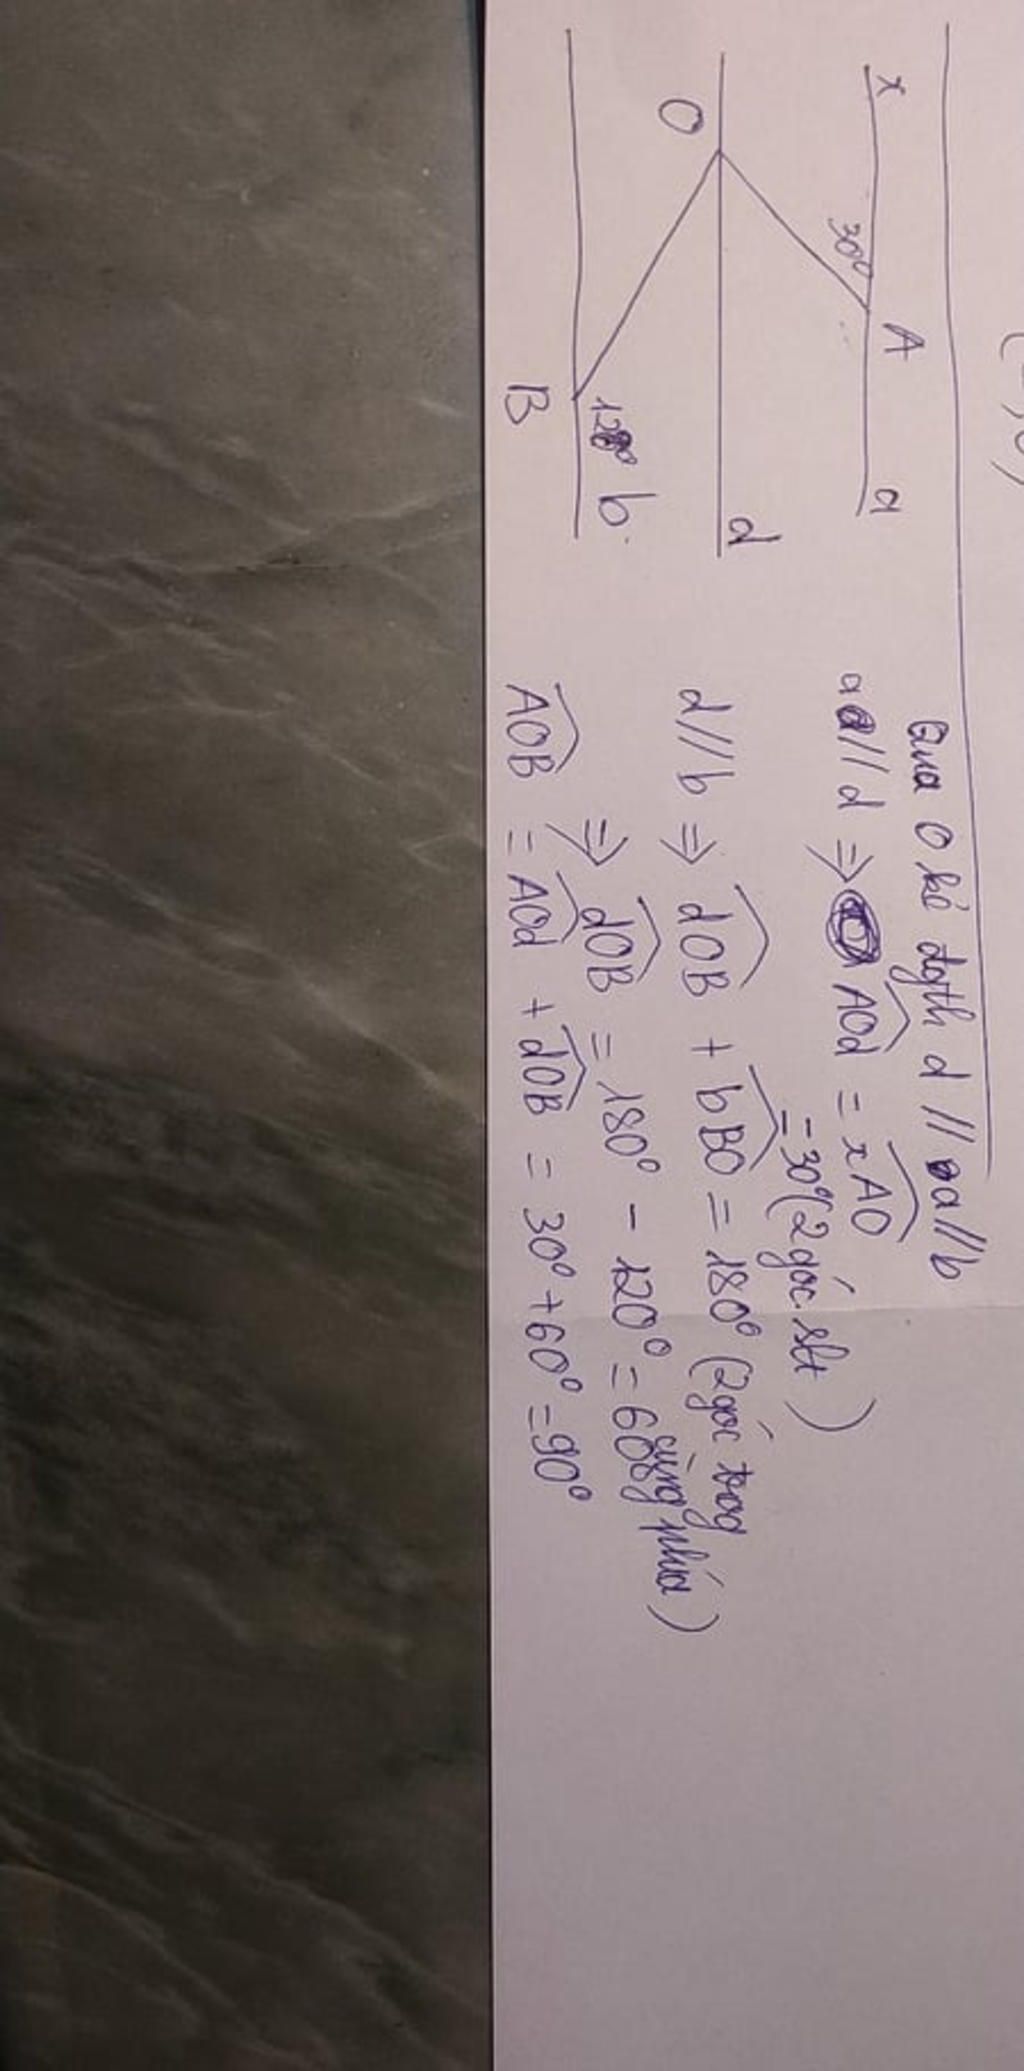 x
A
a
30°
O
d
120°
b
B
Qua O kẻ đgth d // a // b
a // d ⇒ AOd = xAO
= 30° (2 góc slt)
d // b ⇒ dOB + bBO = 180° (2 góc trog
cùng phía)
⇒ dOB = 180° - 120° = 60°
AOB = AOd + dOB = 30° + 60° = 90°